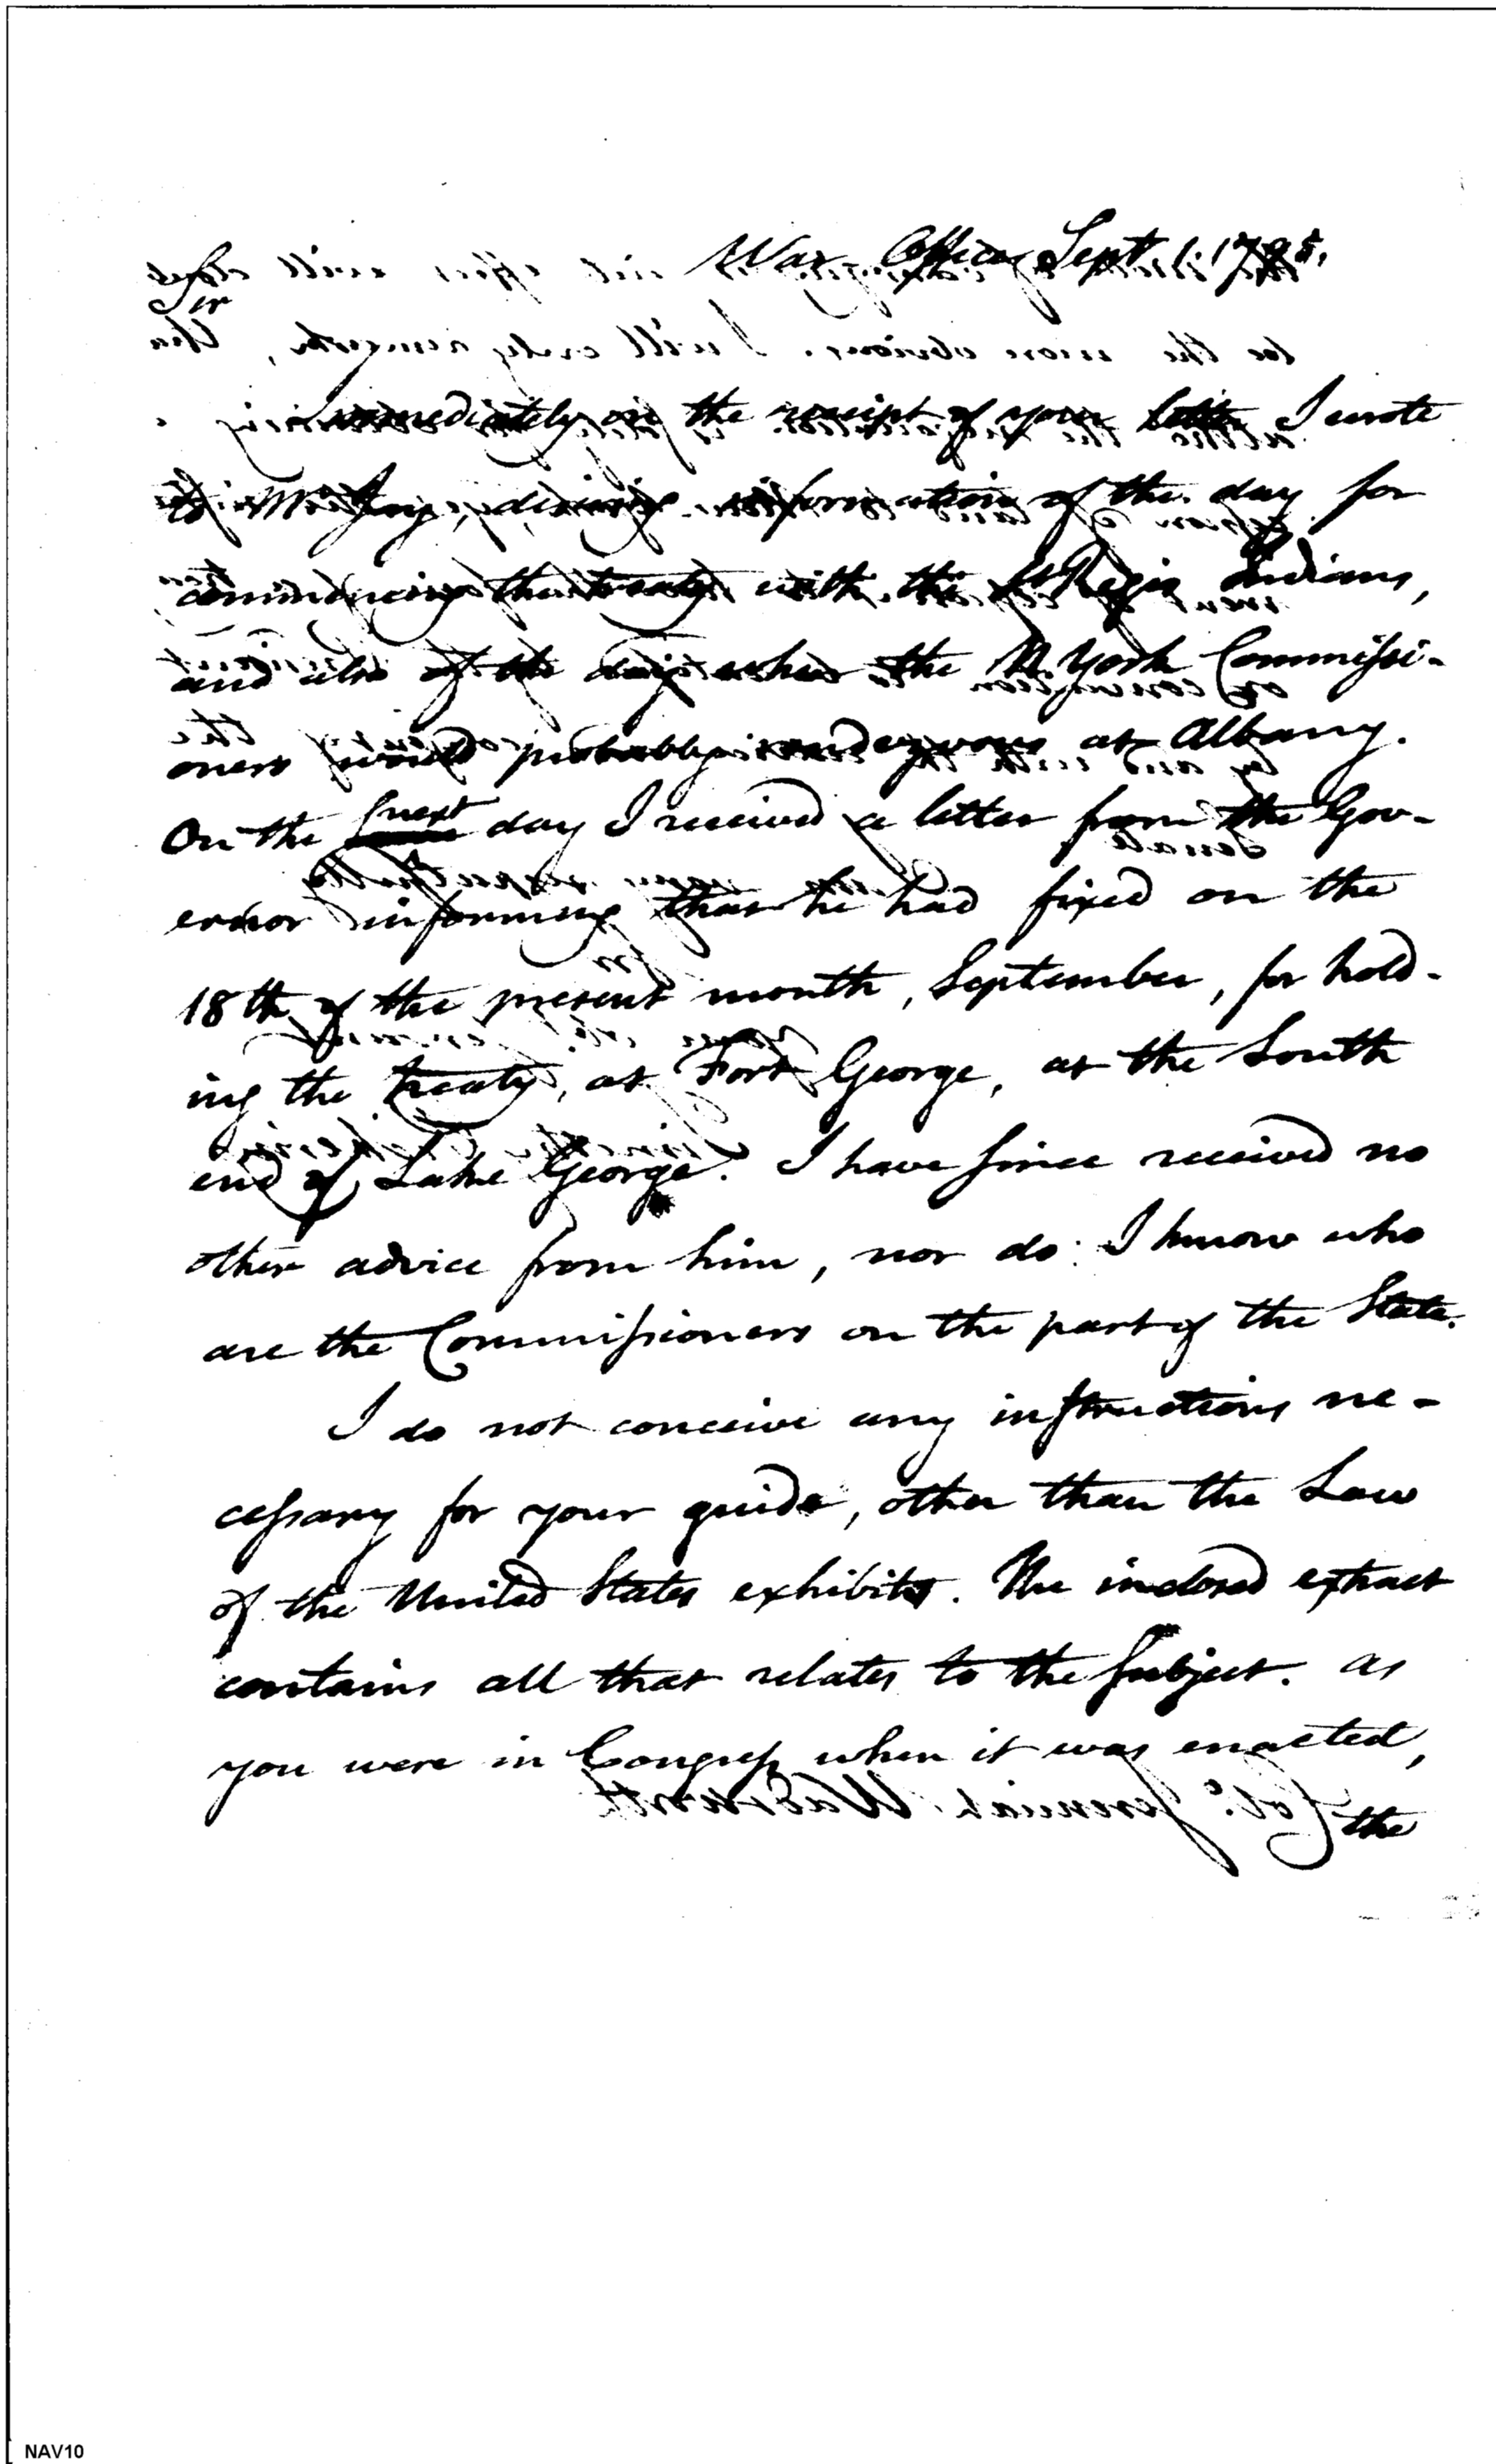 War Office Sept. 1. 1795.
Sir
Immediately on the receipt of your letter I wrote
to Mr. Jay, desiring information of the day for
commencing the treaty with the St Regis Indians,
and also of the day when the N York Commissi-
oners would probably rendezvous at Albany.
On the next day I received a letter from the Gov-
ernor informing that he had fixed on the
18th of the present month, September, for hold-
ing the treaty, at Fort George, at the South
end of Lake George. I have since received no
other advice from him, nor do I know who
are the Commissioners on the part of the State.
I do not conceive any instructions ne-
cessary for your guide, other than the Law
of the United States exhibits. The inclosed extract
contains all that relates to the subject. As
you were in Congress when it was enacted,
Colo. Jeremiah Wadsworth
the
NAV10